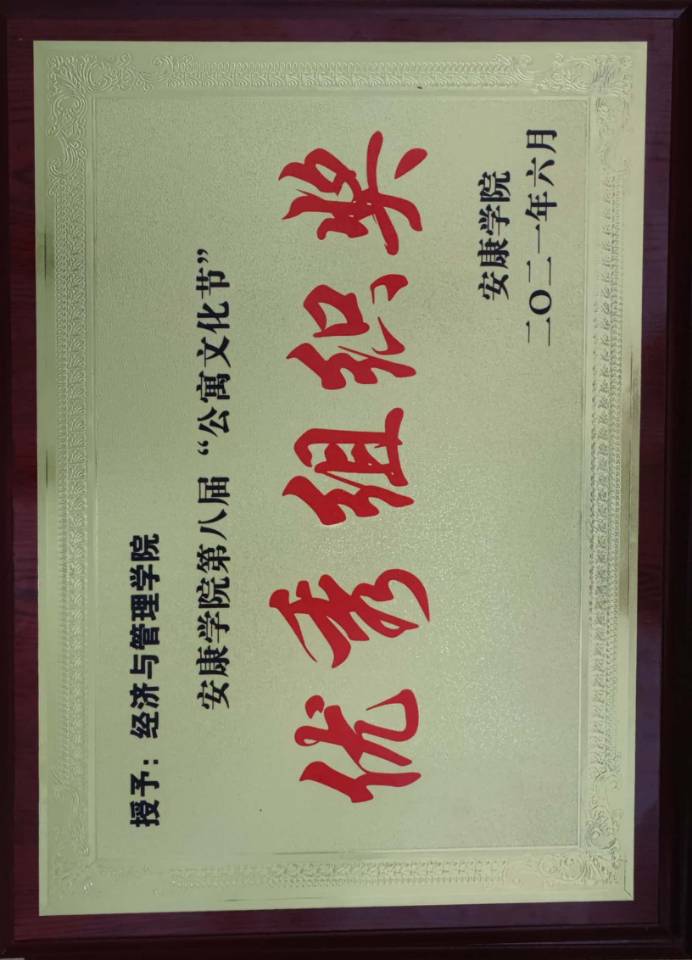 授予：经济与管理学院
安康学院第八届“公寓文化节”
优秀组织奖
安康学院
二〇二一年六月